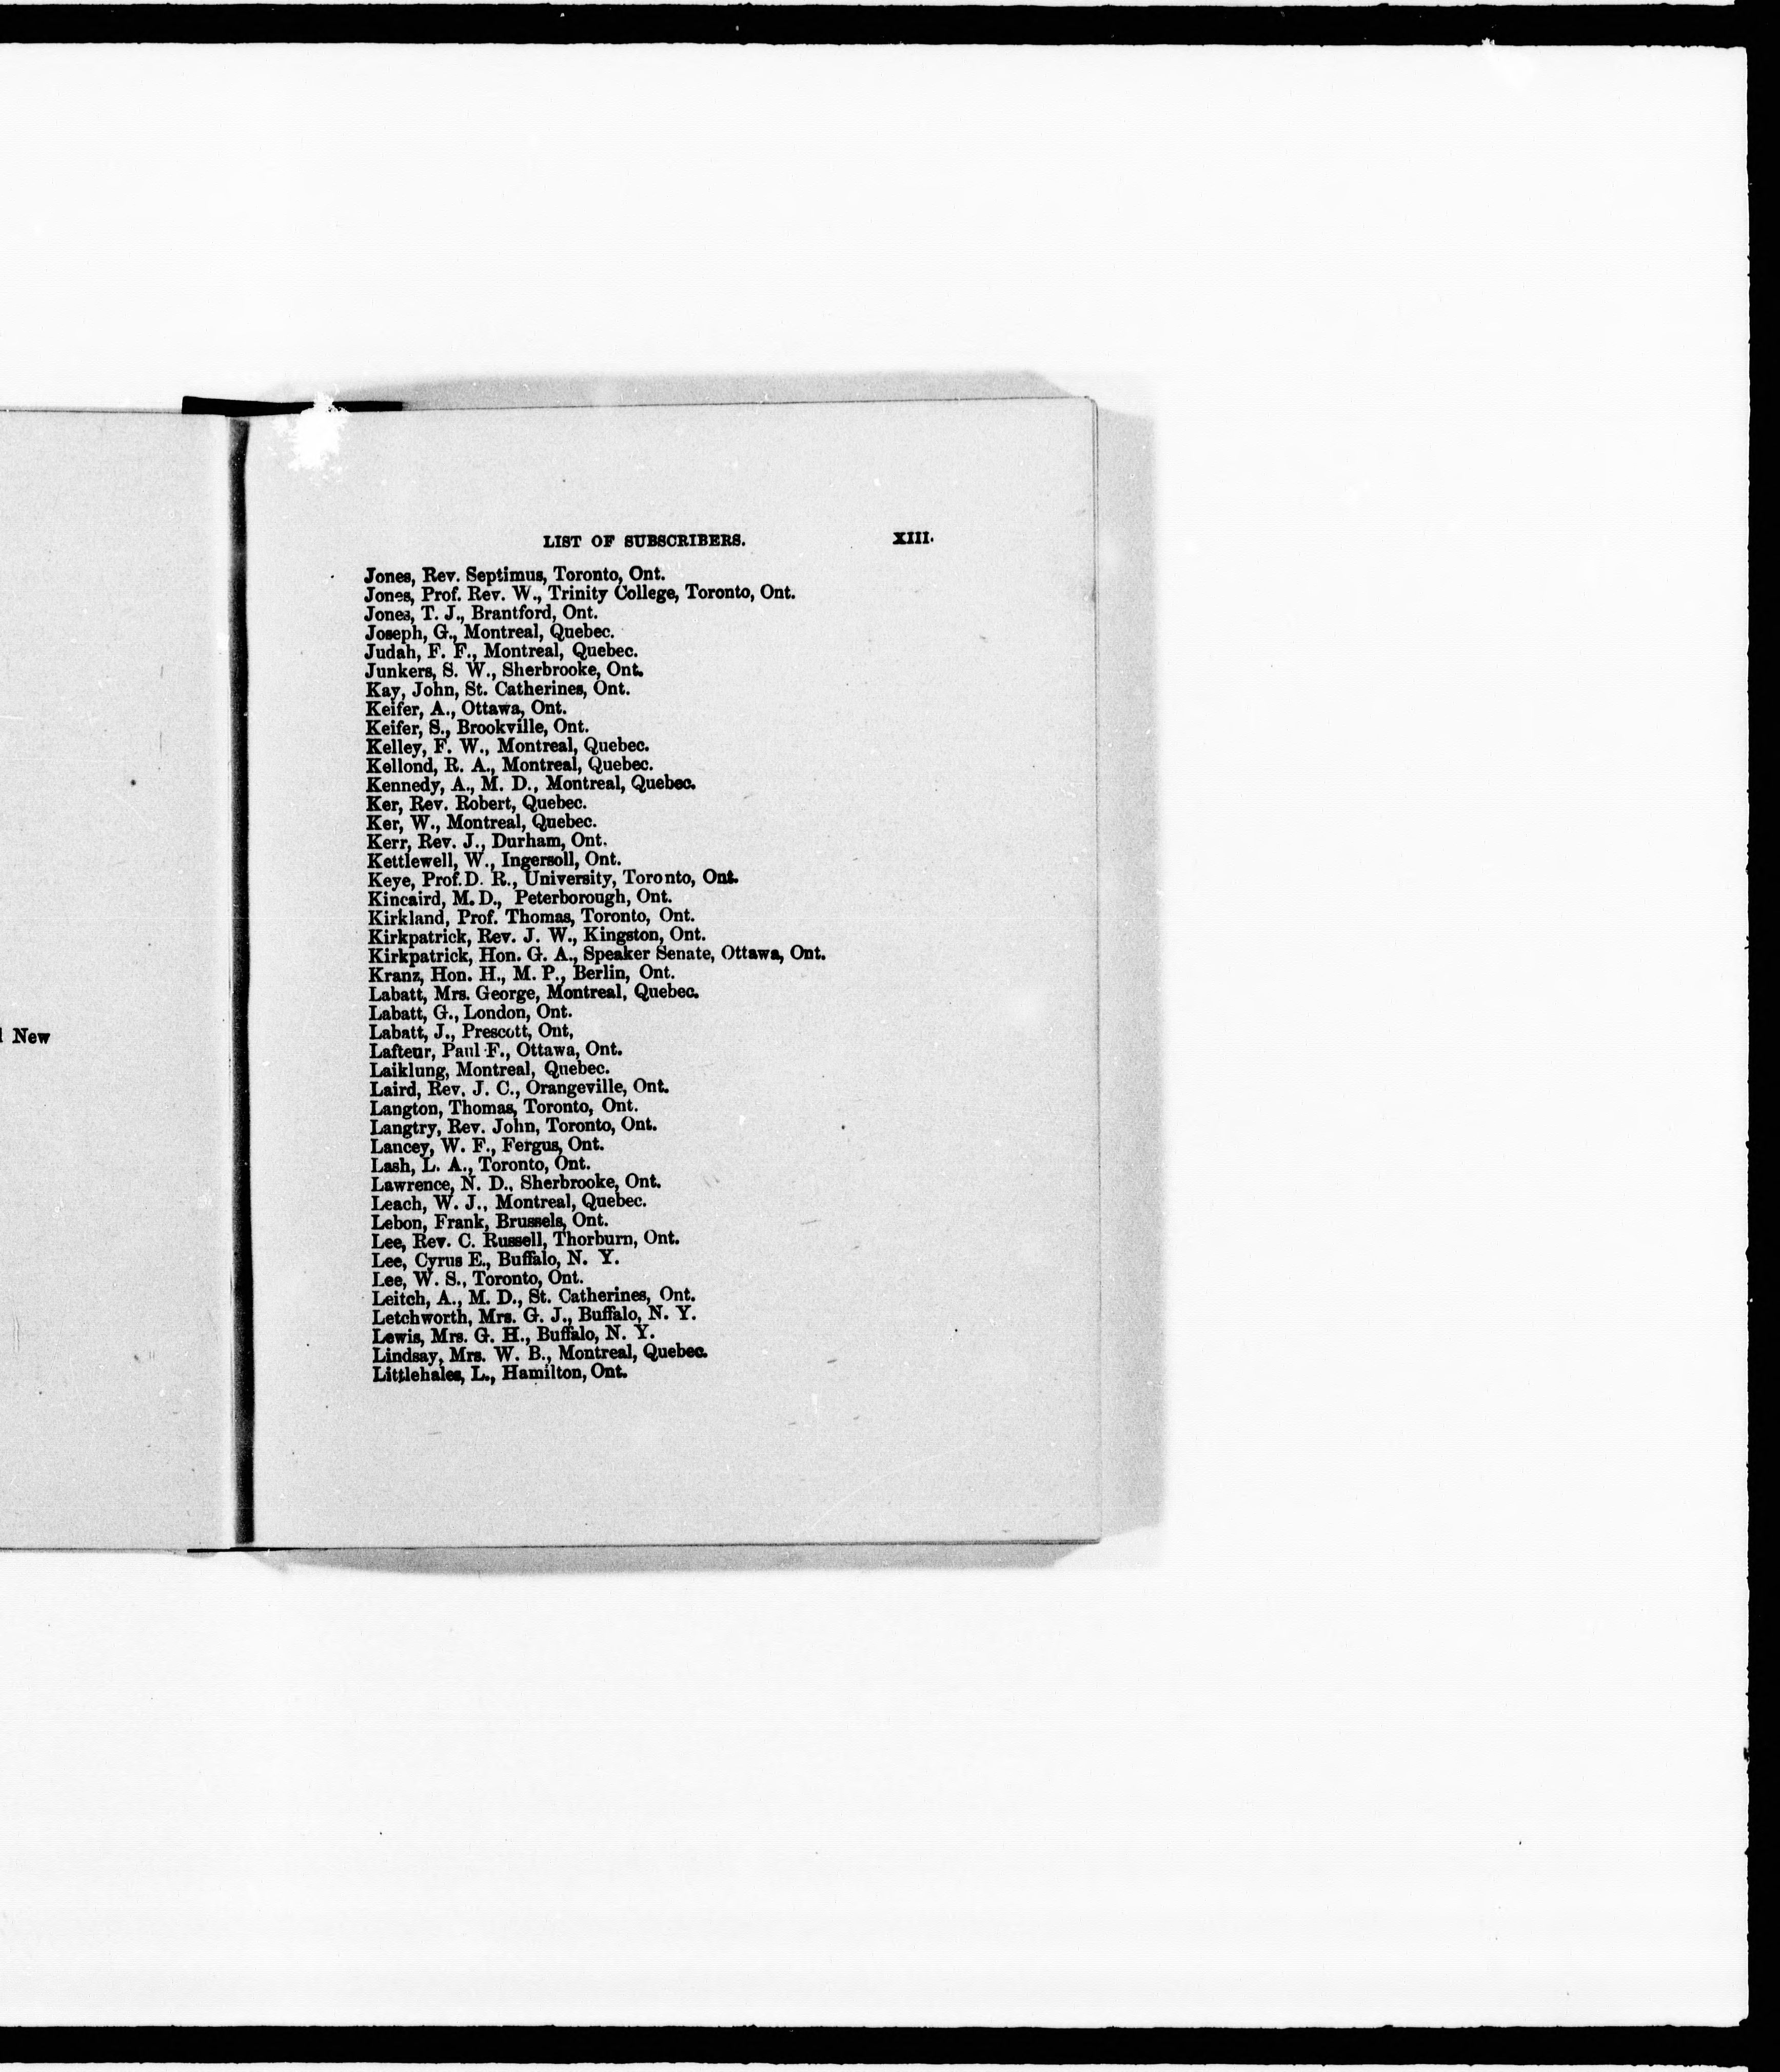 New
LIST OF SUBSCRIBERS. XIII.
Jones, Rev. Septimus, Toronto, Ont.
Jones, Prof. Rev. W., Trinity College, Toronto, Ont.
Jones, T. J., Brantford, Ont.
Joseph, G., Montreal, Quebec.
Judah, F. F., Montreal, Quebec.
Junkers, S. W., Sherbrooke, Ont.
Kay, John, St. Catherines, Ont.
Keifer, A., Ottawa, Ont.
Keifer, S., Brookville, Ont.
Kelley, F. W., Montreal, Quebec.
Kellond, R. A., Montreal, Quebec.
Kennedy, A., M. D., Montreal, Quebec.
Ker, Rev. Robert, Quebec.
Ker, W., Montreal, Quebec.
Kerr, Rev. J., Durham, Ont.
Kettlewell, W., Ingersoll, Ont.
Keye, Prof. D. R., University, Toronto, Ont.
Kincaird, M. D., Peterborough, Ont.
Kirkland, Prof. Thomas, Toronto, Ont.
Kirkpatrick, Rev. J. W., Kingston, Ont.
Kirkpatrick, Hon. G. A., Speaker Senate, Ottawa, Ont.
Kranz, Hon. H., M. P., Berlin, Ont.
Labatt, Mrs. George, Montreal, Quebec.
Labatt, G., London, Ont.
Labatt, J., Prescott, Ont,
Lafteur, Paul F., Ottawa, Ont.
Laiklung, Montreal, Quebec.
Laird, Rev. J. C., Orangeville, Ont.
Langton, Thomas, Toronto, Ont.
Langtry, Rev. John, Toronto, Ont.
Lancey, W. F., Fergus, Ont.
Lash, L. A., Toronto, Ont.
Lawrence, N. D., Sherbrooke, Ont.
Leach, W. J., Montreal, Quebec.
Lebon, Frank, Brussels, Ont.
Lee, Rev. C. Russell, Thorburn, Ont.
Lee, Cyrus E., Buffalo, N. Y.
Lee, W. S., Toronto, Ont.
Leitch, A., M. D., St. Catherines, Ont.
Letchworth, Mrs. G. J., Buffalo, N. Y.
Lewis, Mrs. G. H., Buffalo, N. Y.
Lindsay, Mrs. W. B., Montreal, Quebec.
Littlehales, L., Hamilton, Ont.